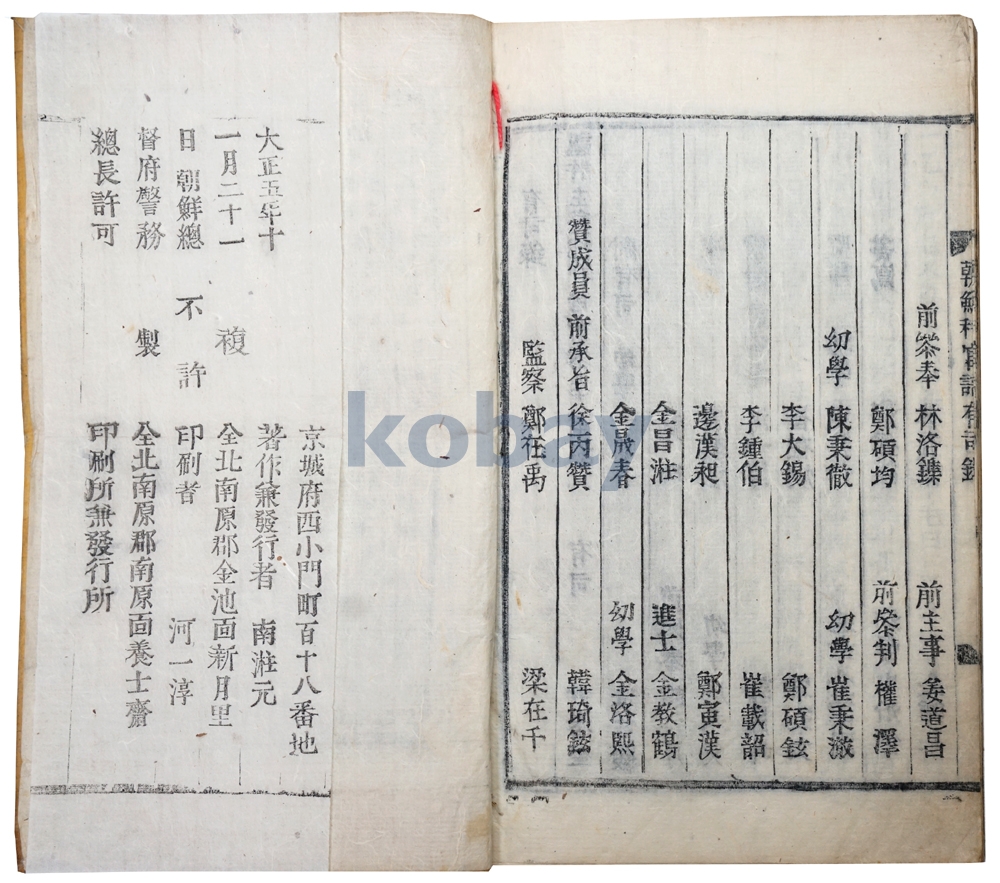 朝鮮科宦譜有司錄
前參奉 林洛鏶 前主事 姜道昌
鄭碩均 前參判 權 澤
幼學 陳秉徹 幼學 崔秉澈
李大錫 鄭碩鉉
李鍾伯 崔載韶
邊漢昶 鄭寅漢
金昌㴤 進士 金敎鶴
金晟春 幼學 金洛熙
贊成員 前承旨 徐丙贊 韓琦鉉
監察 鄭在禹 梁在千
大正五年十
一月二十一
日朝鮮總
督府警務
總長許可
不許
複製
京城府西小門町百十八番地
著作兼發行者 南㴤元
全北南原郡金池面新月里
印刷者 河一淳
全北南原郡南原面養士齋
印刷所兼發行所
kobay